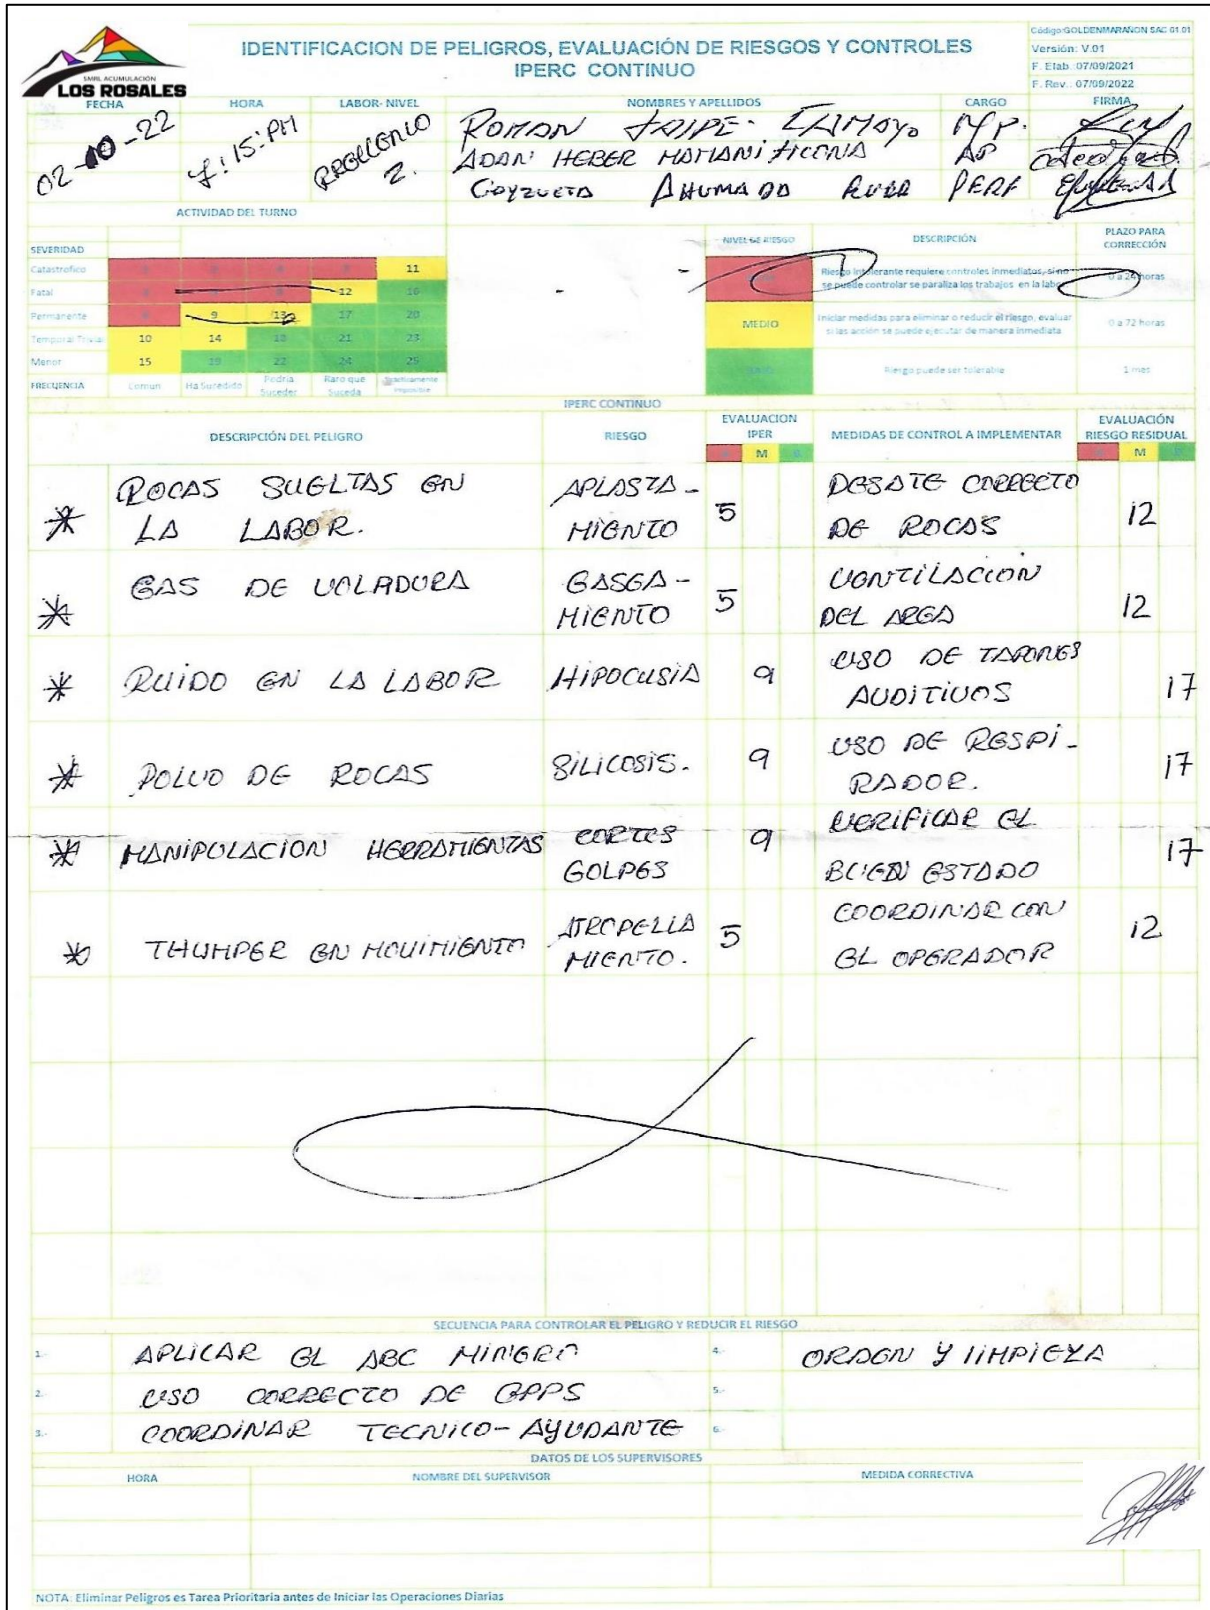 SMRL ACUMULACIÓN
LOS ROSALES
IDENTIFICACION DE PELIGROS, EVALUACIÓN DE RIESGOS Y CONTROLES
IPERC CONTINUO
Código:GOLDENMARAÑON SAC 01.01
Versión: V.01
F. Elab.:07/09/2021
F. Rev.: 07/09/2022
FECHA HORA LABOR- NIVEL NOMBRES Y APELLIDOS CARGO FIRMA
02-10-22 :15:PM 2. ROMAN M.P.
ADAN HEBER MAMANI AP
COYZUETA AHUMADA PERF
ACTIVIDAD DEL TURNO
SEVERIDAD
Catastrofico 11
Fatal 12 16
Permanente 9 13 17 20
Temporal Trivial 10 14 18 21 23
Menor 15 19 22 24 25
FRECUENCIA Comun Ha Suredido Podria Suceder Raro que Suceda
NIVEL DE RIESGO DESCRIPCIÓN PLAZO PARA CORRECCIÓN
Riesgo intolerante requiere controles inmediatos, si no
se puede controlar se paraliza los trabajos en la labor
0 a 24 horas
MEDIO Iniciar medidas para eliminar o reducir el riesgo, evaluar
si las acción se puede ejecutar de manera inmediata
0 a 72 horas
Riesgo puede ser tolerable 1 mes
IPERC CONTINUO
DESCRIPCIÓN DEL PELIGRO RIESGO EVALUACION IPER MEDIDAS DE CONTROL A IMPLEMENTAR EVALUACIÓN RIESGO RESIDUAL
M M
ROCAS SUELTAS EN APLASTA- DESATE CORRECTO
LA LABOR. MIENTO 5 DE ROCAS 12
GAS DE VOLADURA GASEA- VENTILACION
MIENTO 5 DEL AREA 12
RUIDO EN LA LABOR HIPOCUSIA 9 USO DE TAPONES
AUDITIVOS 17
POLVO DE ROCAS SILICOSIS. 9 USO DE RESPI-
RADOR. 17
MANIPULACION HERRAMIENTAS CORTES 9 VERIFICAR EL
GOLPES BUEN ESTADO 17
THUMPER EN MOVIMIENTO ATROPELLA 5 COORDINAR CON 12
MIENTO. EL OPERADOR
SECUENCIA PARA CONTROLAR EL PELIGRO Y REDUCIR EL RIESGO
1.- APLICAR EL ABC MINERO 4.- ORDEN Y LIMPIEZA
2.- USO CORRECTO DE EPPS 5.-
3.- COORDINAR TECNICO-AYUDANTE 6.-
DATOS DE LOS SUPERVISORES
HORA NOMBRE DEL SUPERVISOR MEDIDA CORRECTIVA
NOTA: Eliminar Peligros es Tarea Prioritaria antes de Iniciar las Operaciones Diarias